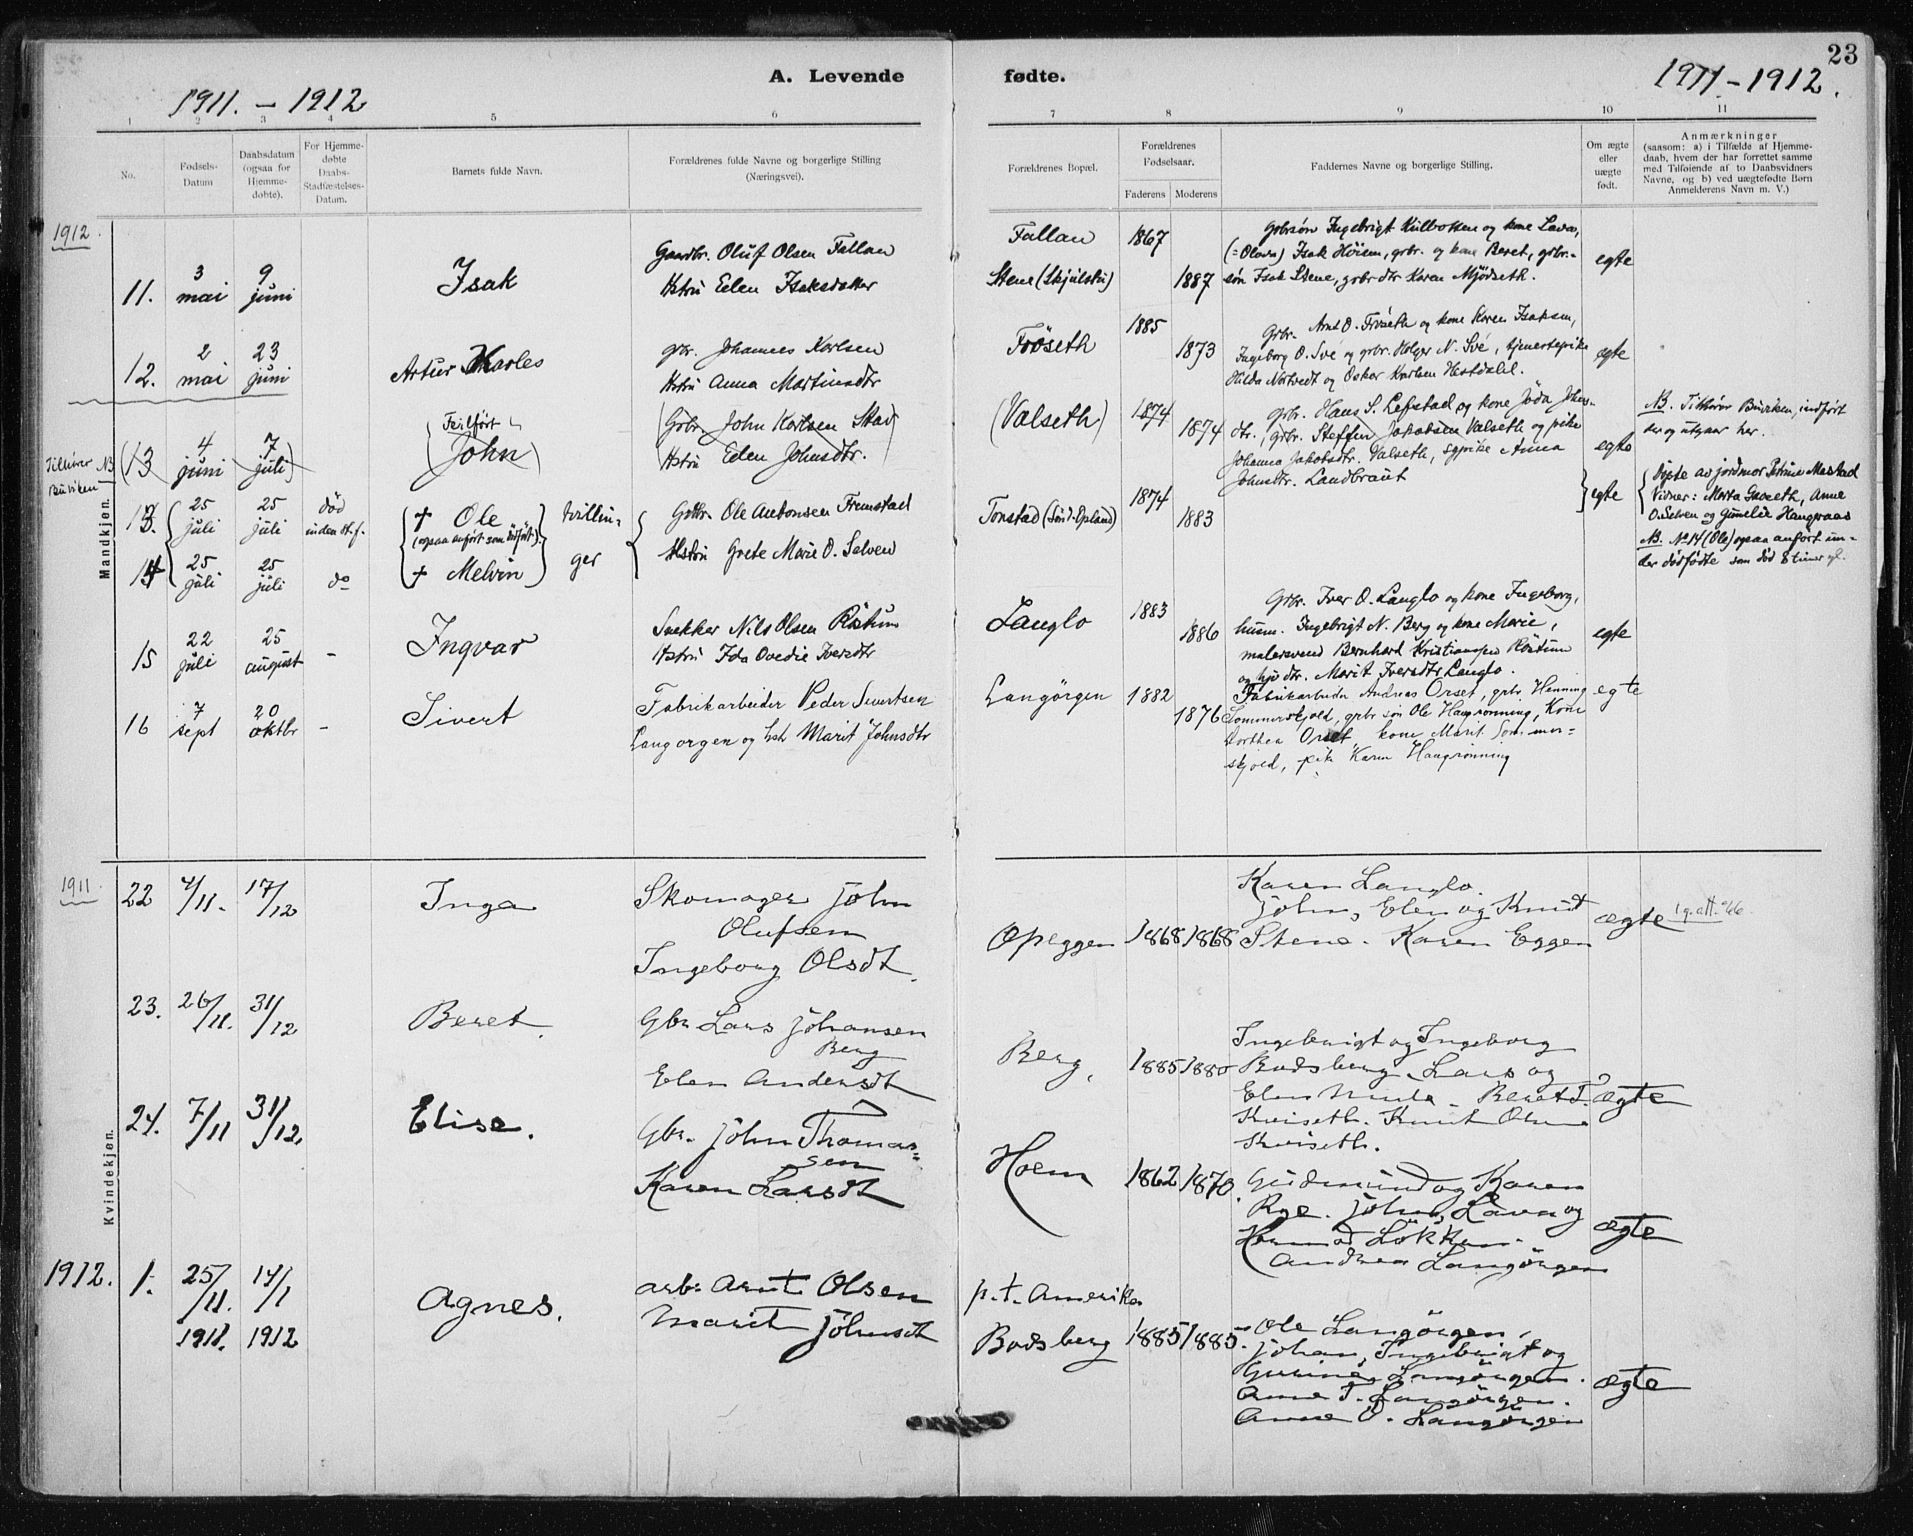 A. Levende fødte.
23
1911. - 1912
1911-1912.
1 2 3 4 5 6 7 8 9 10 11
No.
Fødsels-
Datum
Daabsdatum
(ogsaa for
Hjemme-
døbte).
For Hjemme-
døbte
Daabs-
Stadfæstelses-
Datum.
Barnets fulde Navn.
Forældrenes fulde Navne og borgerlige Stilling
(Næringsvei).
Forældrenes Bopæl.
Forældrenes
Fødselsaar.
Faderens Moderens
Faddernes Navne og borgerlige Stilling.
Om ægte
eller
uægte
født.
Anmærkninger
(saasom: a) i Tilfælde af Hjemme-
daab, hvem der har forrettet samme
med Tilføiende af to Daabsvidners
Navne, og b) ved uægtefødte Børn
Anmelderens Navn m. V.)
Mandkjøn.
1912.
11. 3 mai 9 juni
Isak
Gaardbr. Oluf Olsen Fallan
Hstru Eden Isaksdatter
Fallan 1867
Stene (Skjulstu) 1887
Grbrsøn Ingebrigt Kulbotten og kone Lava,
(=Olava) Isak Høiem, grbr. og kone Beret, grbr.-
søn Isak Stene, grbr dtr Karen Mjösseth.
egte
12. 2 mai 23 juni
Artur Karles
grbr. Johannes Karlsen
Hstru Anna Martinsdtr
Fröseth 1885 1873
Grbr. Arnt O. Fröseth og kone Karen Isaksen,
Ingeborg O. Své og grbr. Holger N. Své, tjenestepike
Hilda Nortvedt og Oskar Karlsen
ægte
Tilhører NB
Buviken
(13 4 juni 7 juli)
(Feilført
John)
(Grbr. John Karlsen Stav
Hstru Eden Johnsdtr.)
(Valseth) 1874 1874
grbr. Hans S. Lefstad og kone Joda Johns-
dtr, grbr. Steffen Jakobsen Valseth og pike
Johanna Jakobsdtr. Valseth, sypike Anna
Johnsdtr. Landbraut
egte
NB. Tilhører Buviken, indført
der og utgaar her.
13. 25 juli 25 juli død inden st.f.
+ Ole
(ogsaa anført som dødfødt)
tvillin-
ger
Grbr. Ole Antonsen Fremstad
Hstru Grete Marie O. Selven
Tonstad (Sønd. Epland) 1874 1883
egte
Døpte av jordmor Petrine Mastad
Vidner: Marta Gaaseth, Anne
O. Selven og Gunelie Haugraas
NB. No 14 (Ole) ogsaa anført un-
der dødfødte som død 8 timer gl.
14 25 juli 25 juli do
+ Melvin
15 22 juli 25 august -
Ingvar
Snekker Nils Olsen Röstum
Hstru Ida Ovedie Iversdtr
Langlo 1883 1886
Grbr. Iver O. Langlo og kone Ingeborg,
husm. Ingebrigt N. Berg og kone Marie,
malersvend Bernhard Kristiansen Röstum
og hjv dtr. Marit Iversdtr Langlo.
egte
16 7 sept 20 oktbr -
Sivert
Fabrikarbeider Peder Sivertsen
Langorgen og hstr Marit Johnsdtr
Langörgen 1882 1876
Fabrikarbeider Andreas Orset, grbr Henning
Sommerskjold, grbr søn Ole Haugrønning, Kone
Dorthea Orset kone Marit Sommer=
skjold, pike Karen Haugrønning
egte
Kvindekjøn.
1911
22 4/11. 17/12
Inga
Skomager John
Olufsen
Ingeborg Olsdt.
Opeggen 1868 1868
Karen Langlo.
John, Elen og Knut
Stene. Karen Eggen
ægte
1 g. att. 66.
23. 26/11. 31/12
Beret.
Gbr Lars Johansen
Berg
Elen Andersdt
Berg, 1885 1880
Ingebrigt og Ingeborg
Bodsberg. Lars og
Elen Minde. Beret T.
Kviseth. Knut Olsen
Kviseth.
ægte
24. 7/11 31/12.
Elise.
Gbr. John Thomas=
sen
Karen Larsdt
Hoem 1862 1870.
Gudmund og Karen
Rye. John, Lava og
Løkken.
Andrea Langörgen
ægte
1912. 1. 25/11. 1911. 14/1 1912
Agnes.
arb. Arnt Olsen
Marit Johnsdt
p.t. Amerika
Bodsberg 1885 1885.
Ole Langörgen,
Johan, Ingebrigt og
Gurine Langörgen.
Anne T. Langörgen.
Anne O. Langörgen
ægte